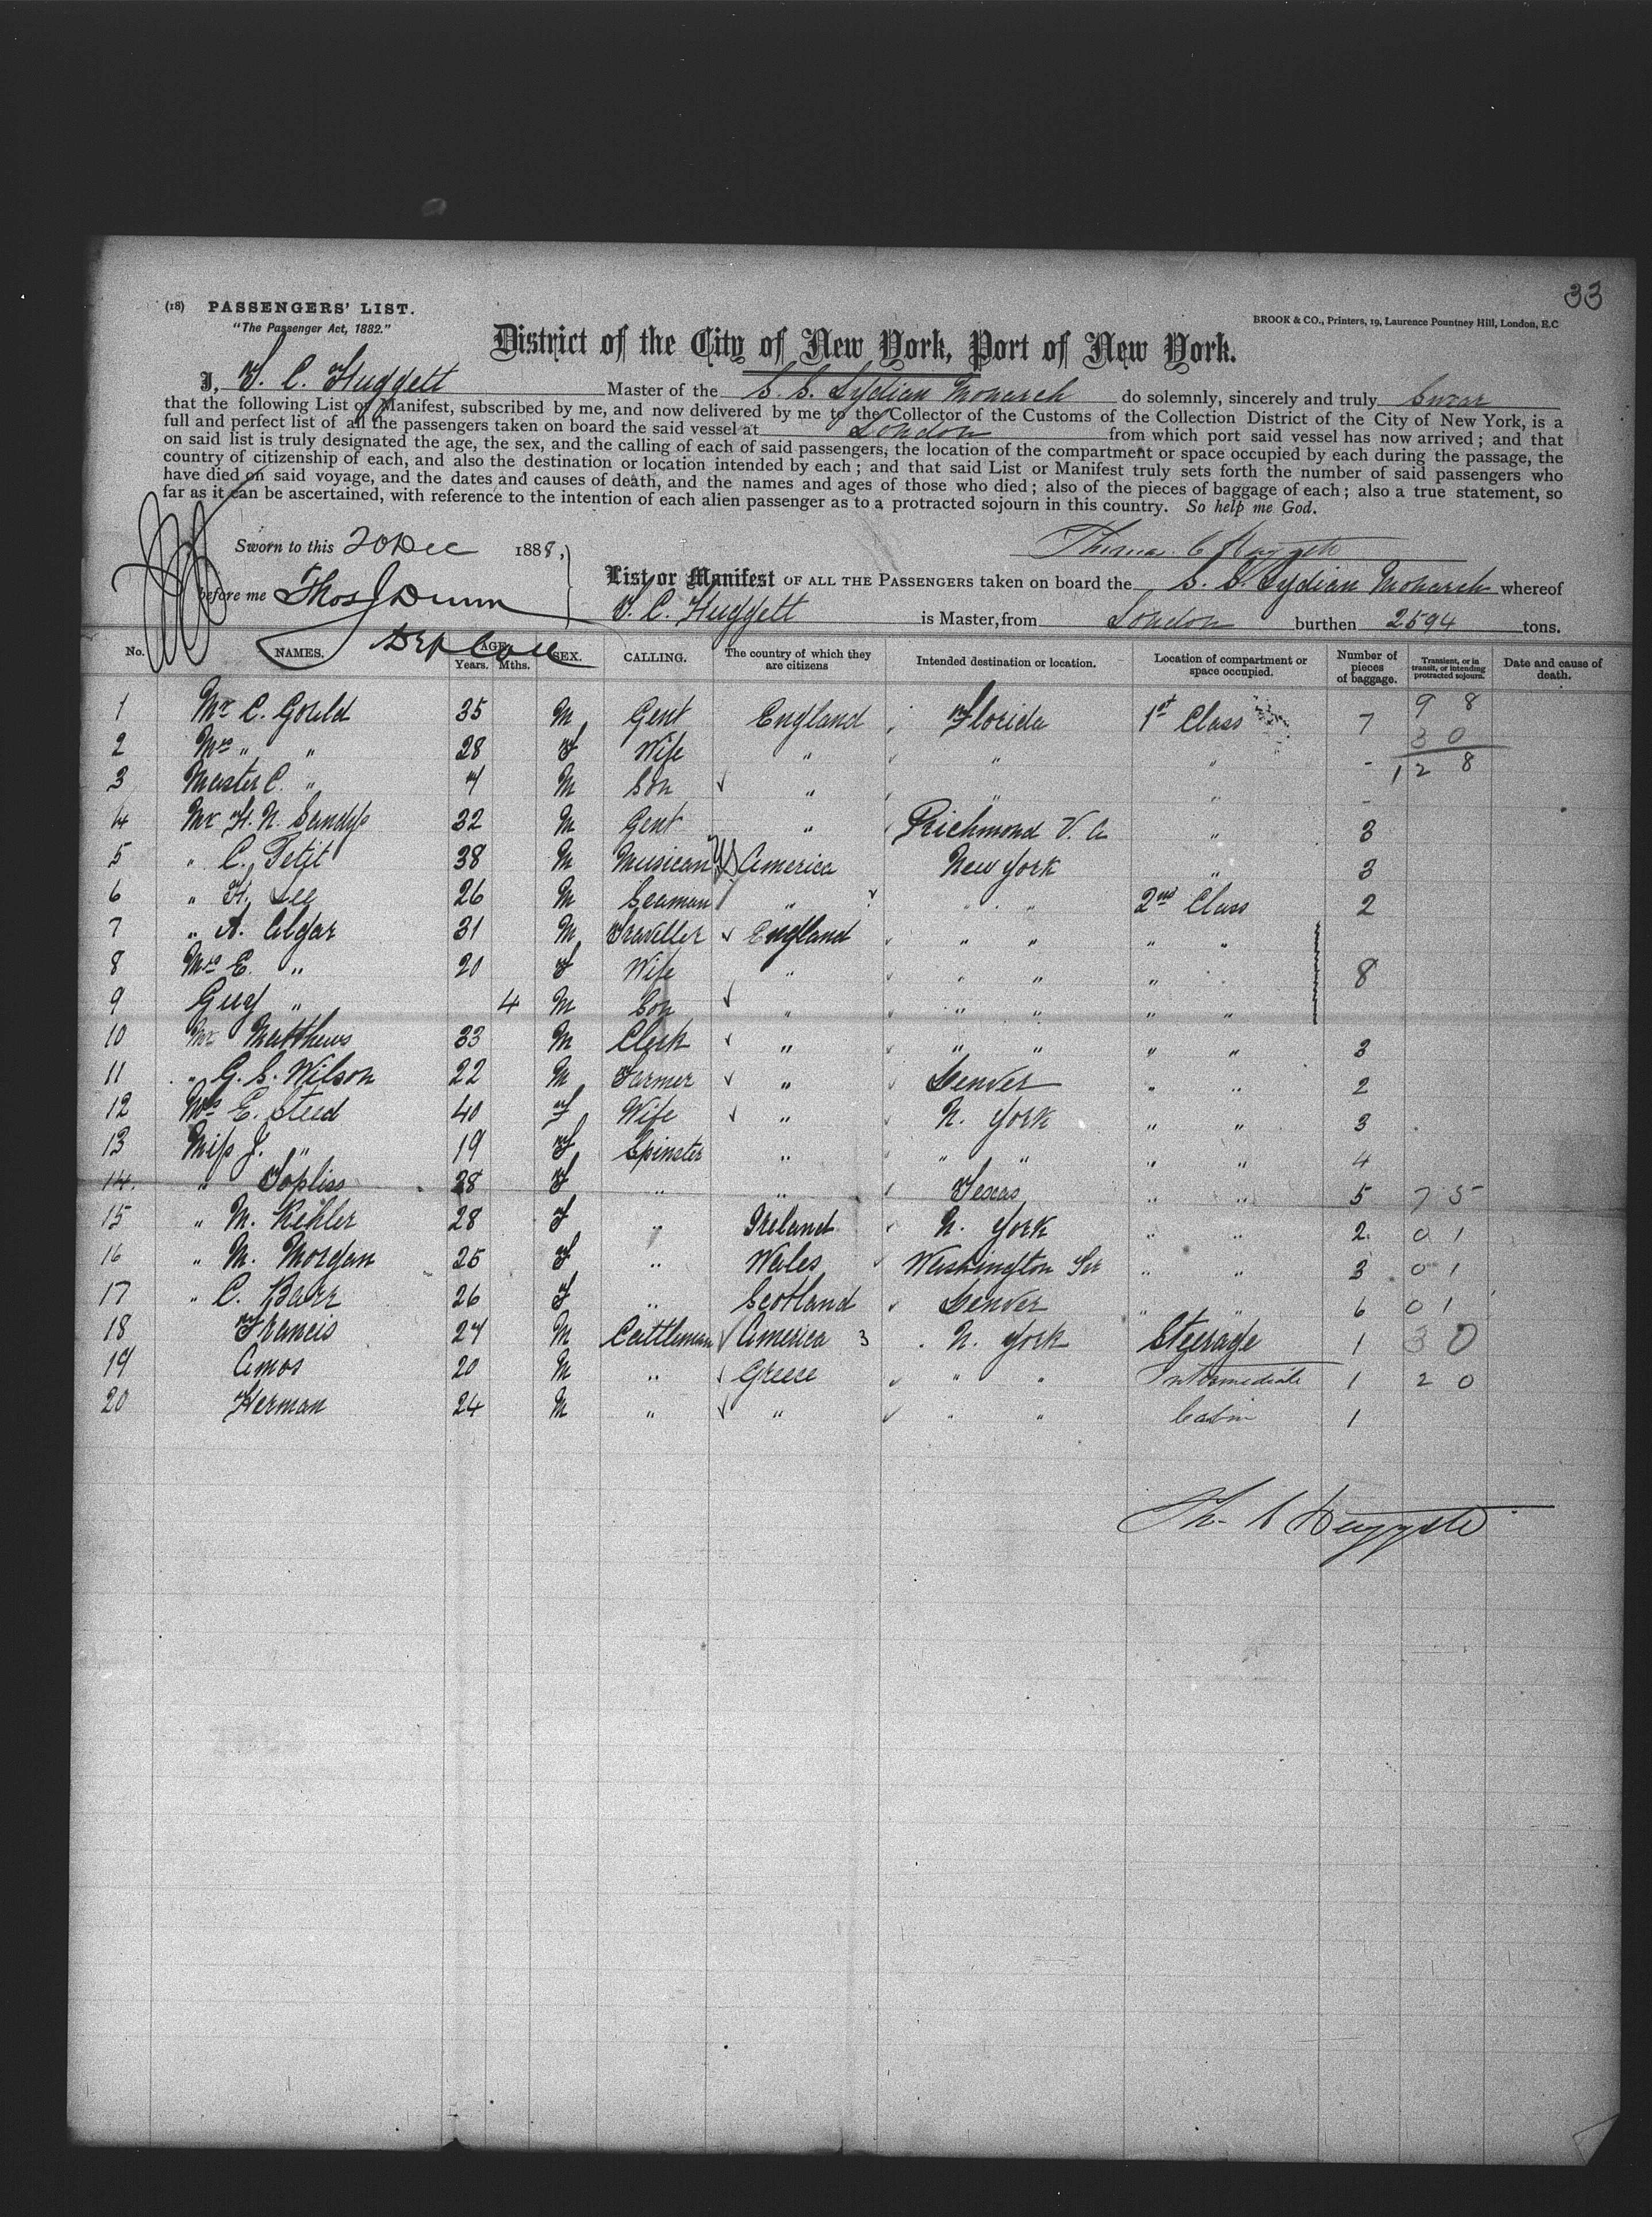 33
(18) PASSENGERS' LIST.
"The Passenger Act, 1882."
BROOK & CO., Printers, 19, Laurence Pountney Hill, London, E.C
District of the City of New York, Port of New York.
I, T. C. Huggett Master of the S. S. Lydian Monarch do solemnly, sincerely and truly swear
that the following List or Manifest, subscribed by me, and now delivered by me to the Collector of the Customs of the Collection District of the City of New York, is a
full and perfect list of all the passengers taken on board the said vessel at London from which port said vessel has now arrived; and that
on said list is truly designated the age, the sex, and the calling of each of said passengers, the location of the compartment or space occupied by each during the passage, the
country of citizenship of each, and also the destination or location intended by each; and that said List or Manifest truly sets forth the number of said passengers who
have died on said voyage, and the dates and causes of death, and the names and ages of those who died; also of the pieces of baggage of each; also a true statement, so
far as it can be ascertained, with reference to the intention of each alien passenger as to a protracted sojourn in this country. So help me God.
Sworn to this 20 Dec 1888,
Thomas C Huggett
before me Thos J Dunn
Dep Coll
List or Manifest OF ALL THE PASSENGERS taken on board the S. S. Lydian Monarch whereof
T. C. Huggett is Master, from London burthen 2594 tons.
No. NAMES. AGE. Years. Mths. SEX. CALLING. The country of which they are citizens Intended destination or location. Location of compartment or space occupied. Number of pieces of baggage. Transient, or in transit, or intending protracted sojourn. Date and cause of death.
1 Mr C. Gould 35 M Gent England Florida 1st Class 7 9 8
2 Mrs " " 28 F Wife " " " - 3 0
3 Master C. " 4 M Son " " " - 12 8
4 Mr H. N. Sandys 32 M Gent " Richmond V. A " 3
5 " C. Petit 38 M Musican US America New York " 3
6 " H. Lee 26 M Seaman " " " 2nd Class 2
7 " A. Algar 31 M Traveller England " " " "
8 Mrs E. " 20 F Wife " " " " 8
9 Guy " 4 M Son " " " " "
10 Mr Matthews 33 M Clerk " " " " " 3
11 " G. S. Wilson 22 M Farmer " Denver " " 2
12 Mrs E. Steed 40 F Wife " N. York " " 3
13 Miss J. " 19 F Spinster " " " " " 4
14. " Topliss 28 F " " Texas " " 5 7 5
15 " M. Kehler 28 F " Ireland N. York " " 2 0 1
16 " M. Morgan 25 F " Wales Washington Ter " " 3 0 1
17 " C. Barr 26 F " Scotland Denver " " 6 0 1
18 Francis 27 M Cattleman America 3 N. York Steerage 1 3 0
19 Amos 20 M " Greece " " Intermediate 1 2 0
20 Herman 24 M " " " " Cabin 1
Th. C Huggett